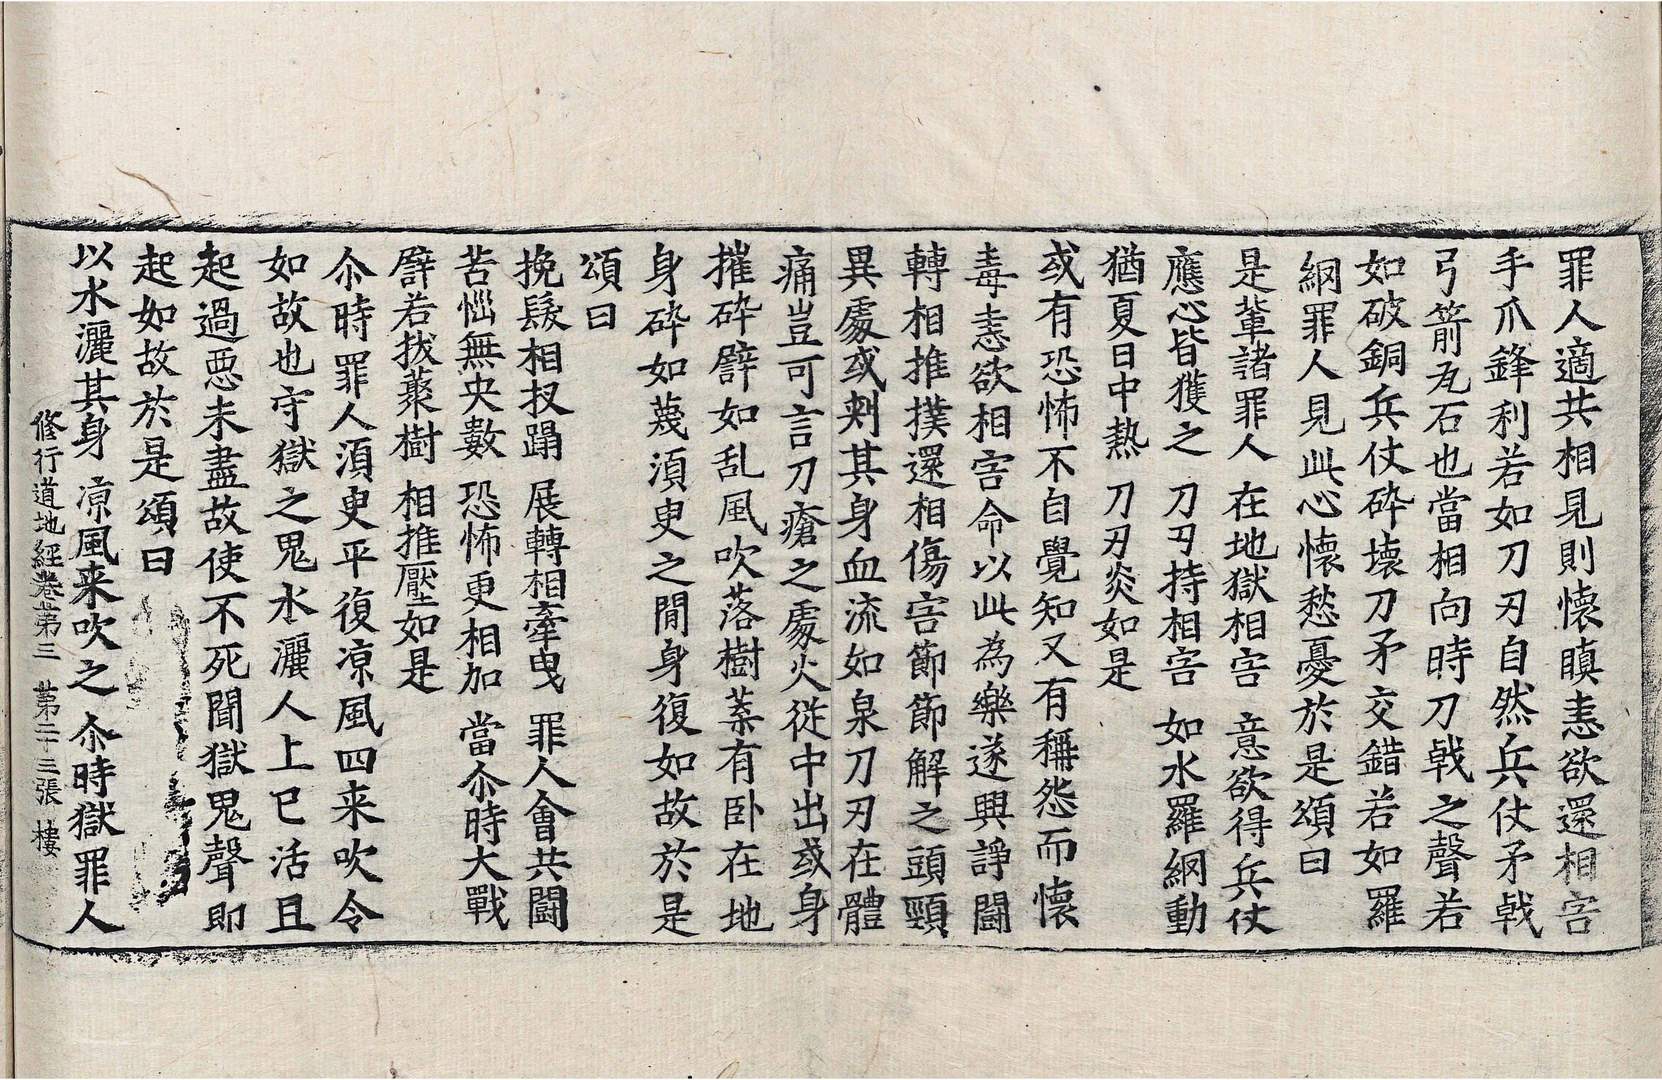 罪人適共相見則懷瞋恚欲還相害
手爪鋒利若如刀刃自然兵仗矛戟
弓箭瓦石也當相向時刀戟之聲若
如破銅兵仗碎壞刀矛交錯若如羅
網罪人見此心懷愁憂於是頌曰
是輩諸罪人 在地獄相害 意欲得兵仗
應心皆獲之 刀刃持相害 如水羅網動
猶夏日中熱 刀刃炎如是
或有恐怖不自覺知又有稱怨而懷
毒恚欲相害命以此為樂遂興諍鬪
轉相推撲還相傷害節節解之頭頸
異處或刾其身血流如泉刀刃在體
痛豈可言刀瘡之處火從中出或身
摧碎譬如乱風吹落樹葉有卧在地
身碎如蔑湏臾之閒身復如故於是
頌曰
挽髮相扠蹋 展轉相牽曳 罪人會共鬪
苦惱無央數 恐怖更相加 當尒時大戰
譬若拔藂樹 相推壓如是
尒時罪人湏臾平復凉風四来吹令
如故也守獄之鬼水灑人上已活且
起過惡未盡故使不死聞獄鬼聲即
起如故於是頌曰
以水灑其身 凉風来吹之 尒時獄罪人
修行道地經卷第三 第二十三張 樓